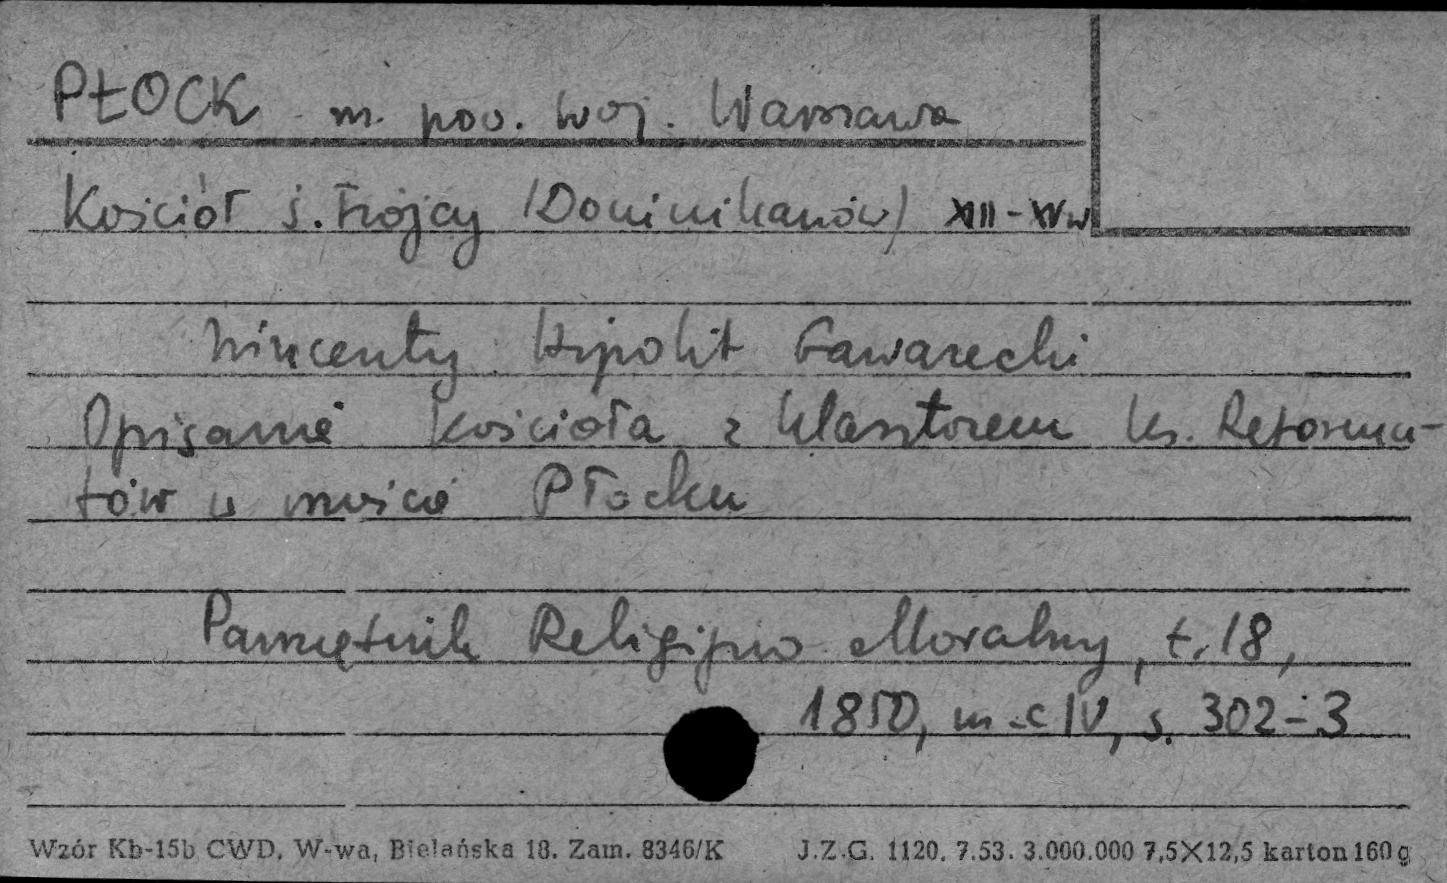 PŁOCK m. pow. woj. Warszawa
Kościół ś. Trójcy (Dominikanów) XIII-XVw
Wincenty Hipolit Gawarecki
Opisanie kościoła z klasztorem ks. Reforma-
tów w mieście Płocku
Pamiętnik Religijno Moralny, t. 18,
1850, m-c IV, s. 302-3
Wzór Kb-15b CWD, W-wa, Bielańska 18. Zam. 8346/K J.Z.G. 1120. 7.53. 3.000.000 7,5×12,5 karton 160 g